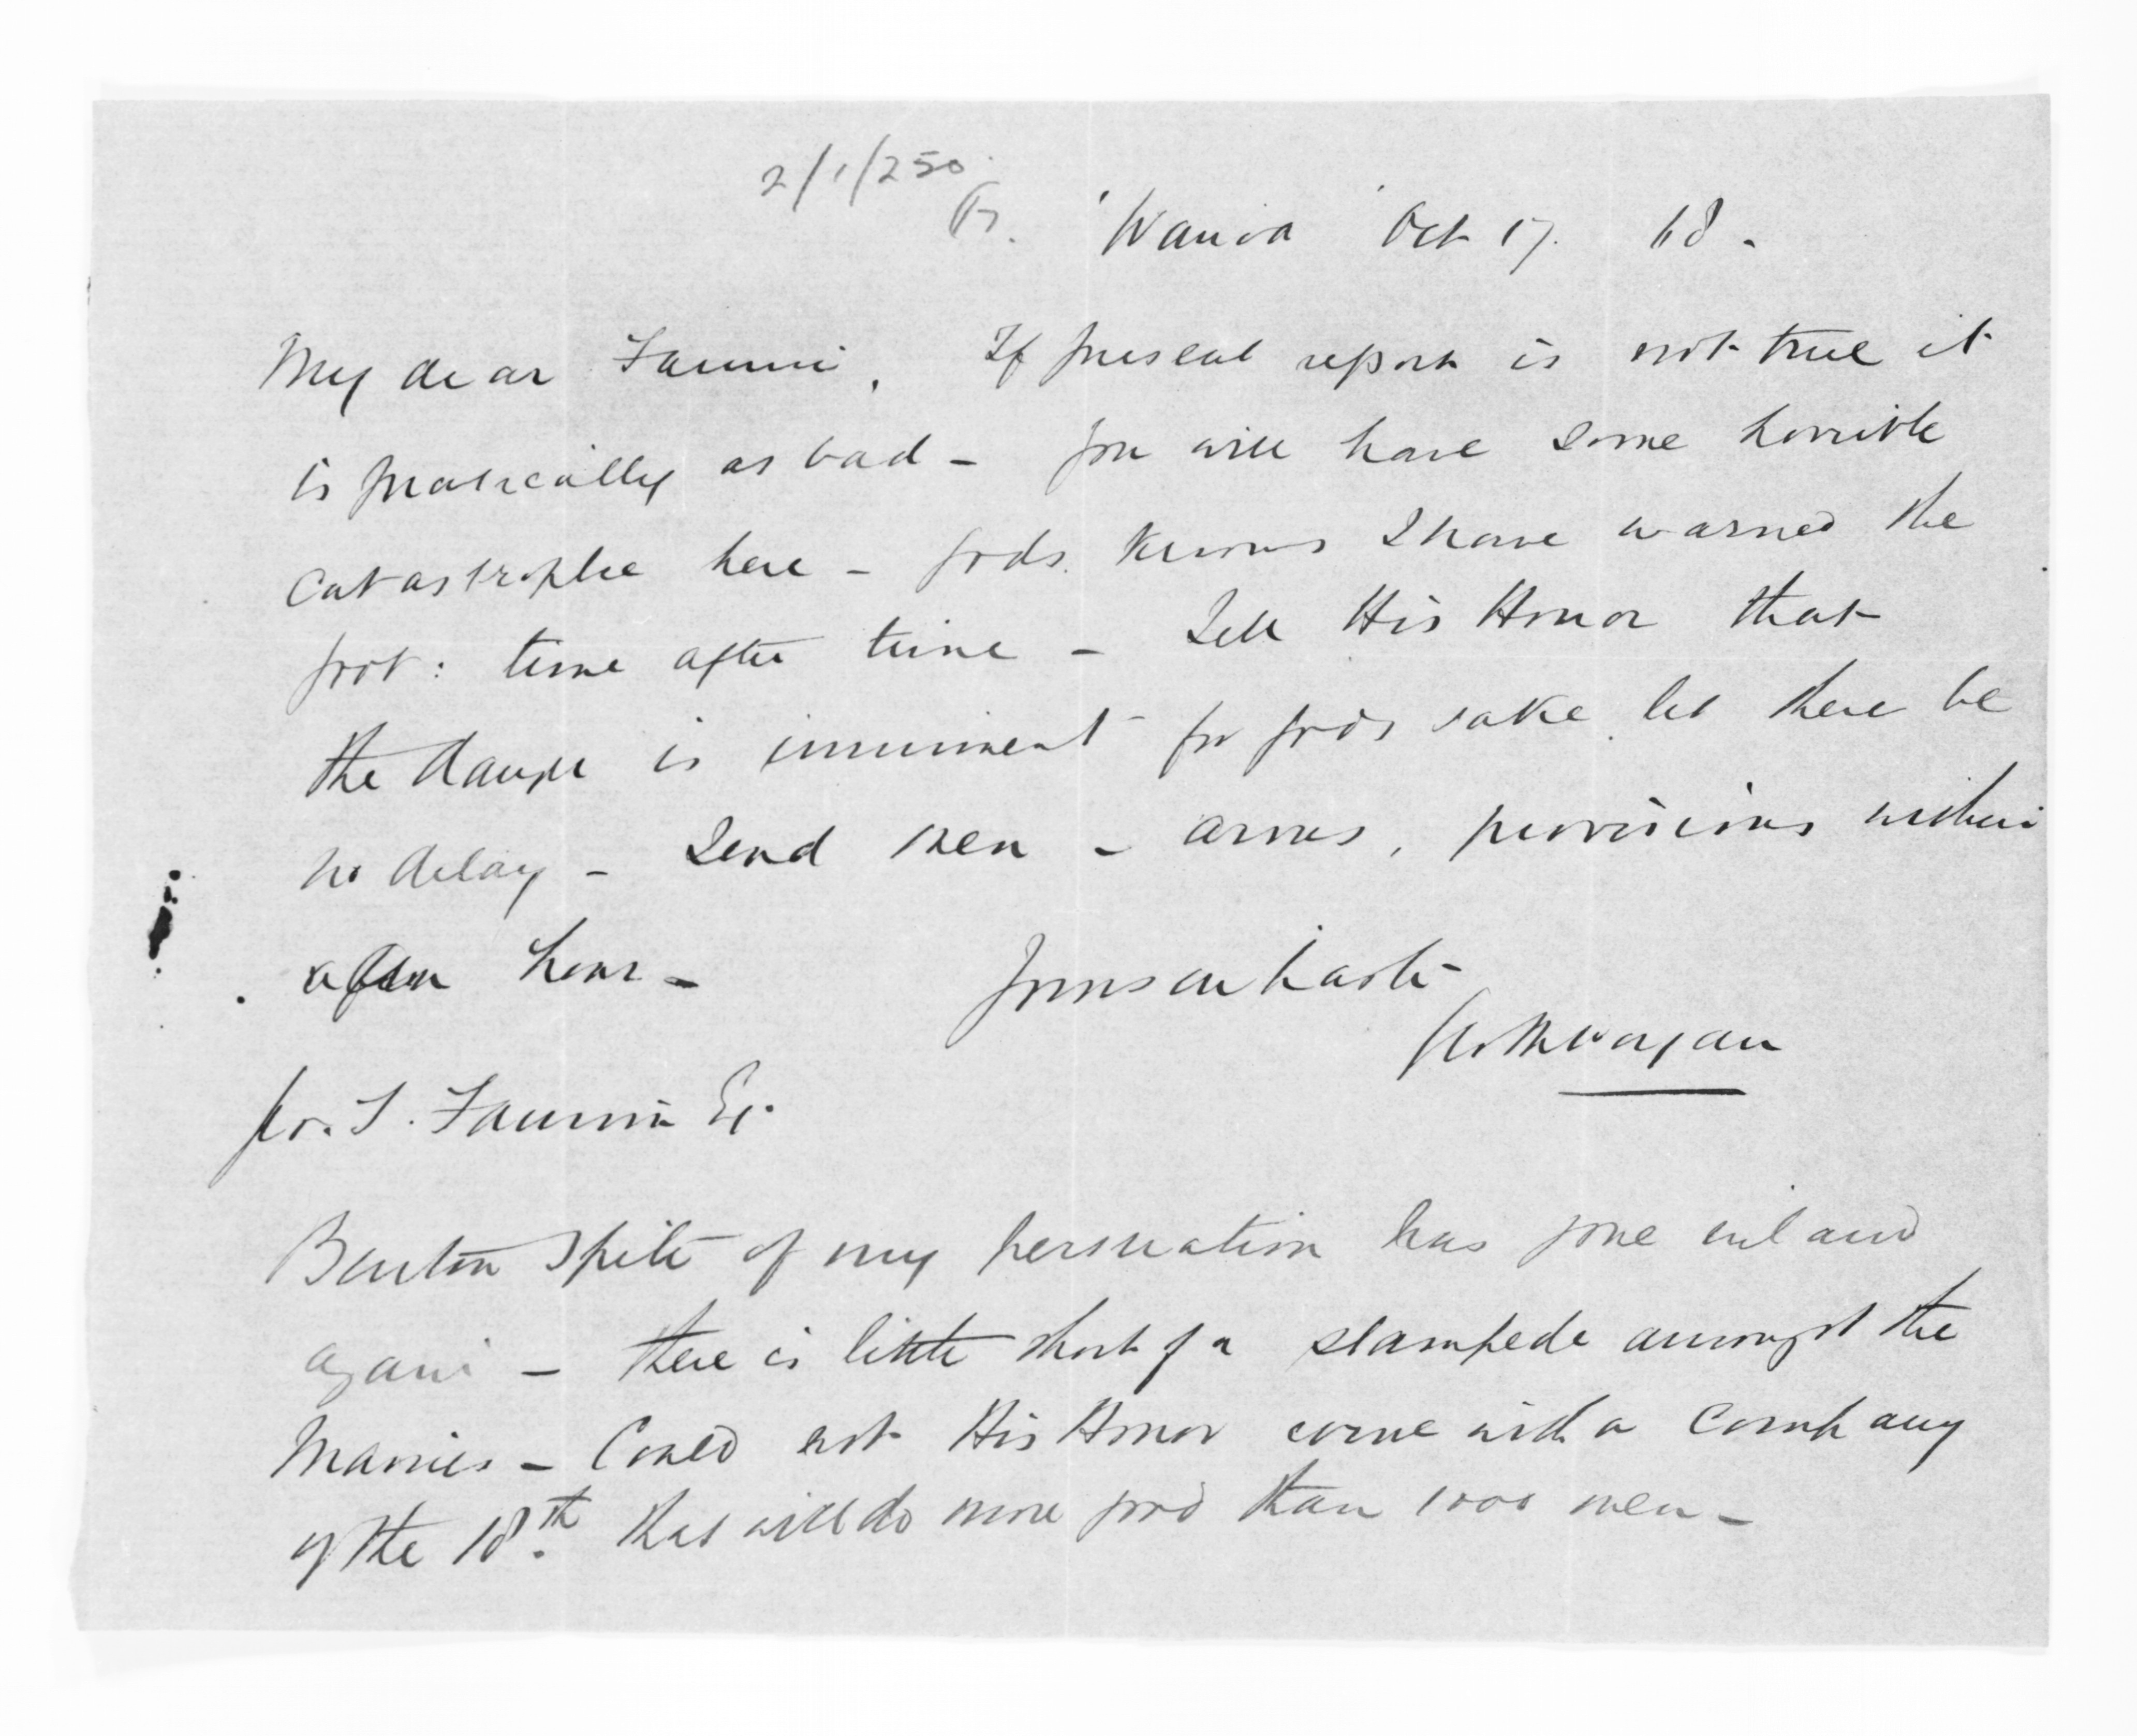 2/1/250
Wairoa Oct 17. 68 -
My dear Tannin. If present report is not true it
is practically as bad - you will have some horrible
catastrophe here - gods knows I have warned the
govt: time after time - Tell His Honor that
the danger is imminent for gods sake let there be
no delay - Send men - arms, provisions within
an hour -
Yours in haste
Jno. T. Esq.
Burton spite of my persuation has gone inland
again - there is little short of a stampede amongst the
Maories - Could not His Honor come with a Company
of the 18th. that will do more good than 1000 men -